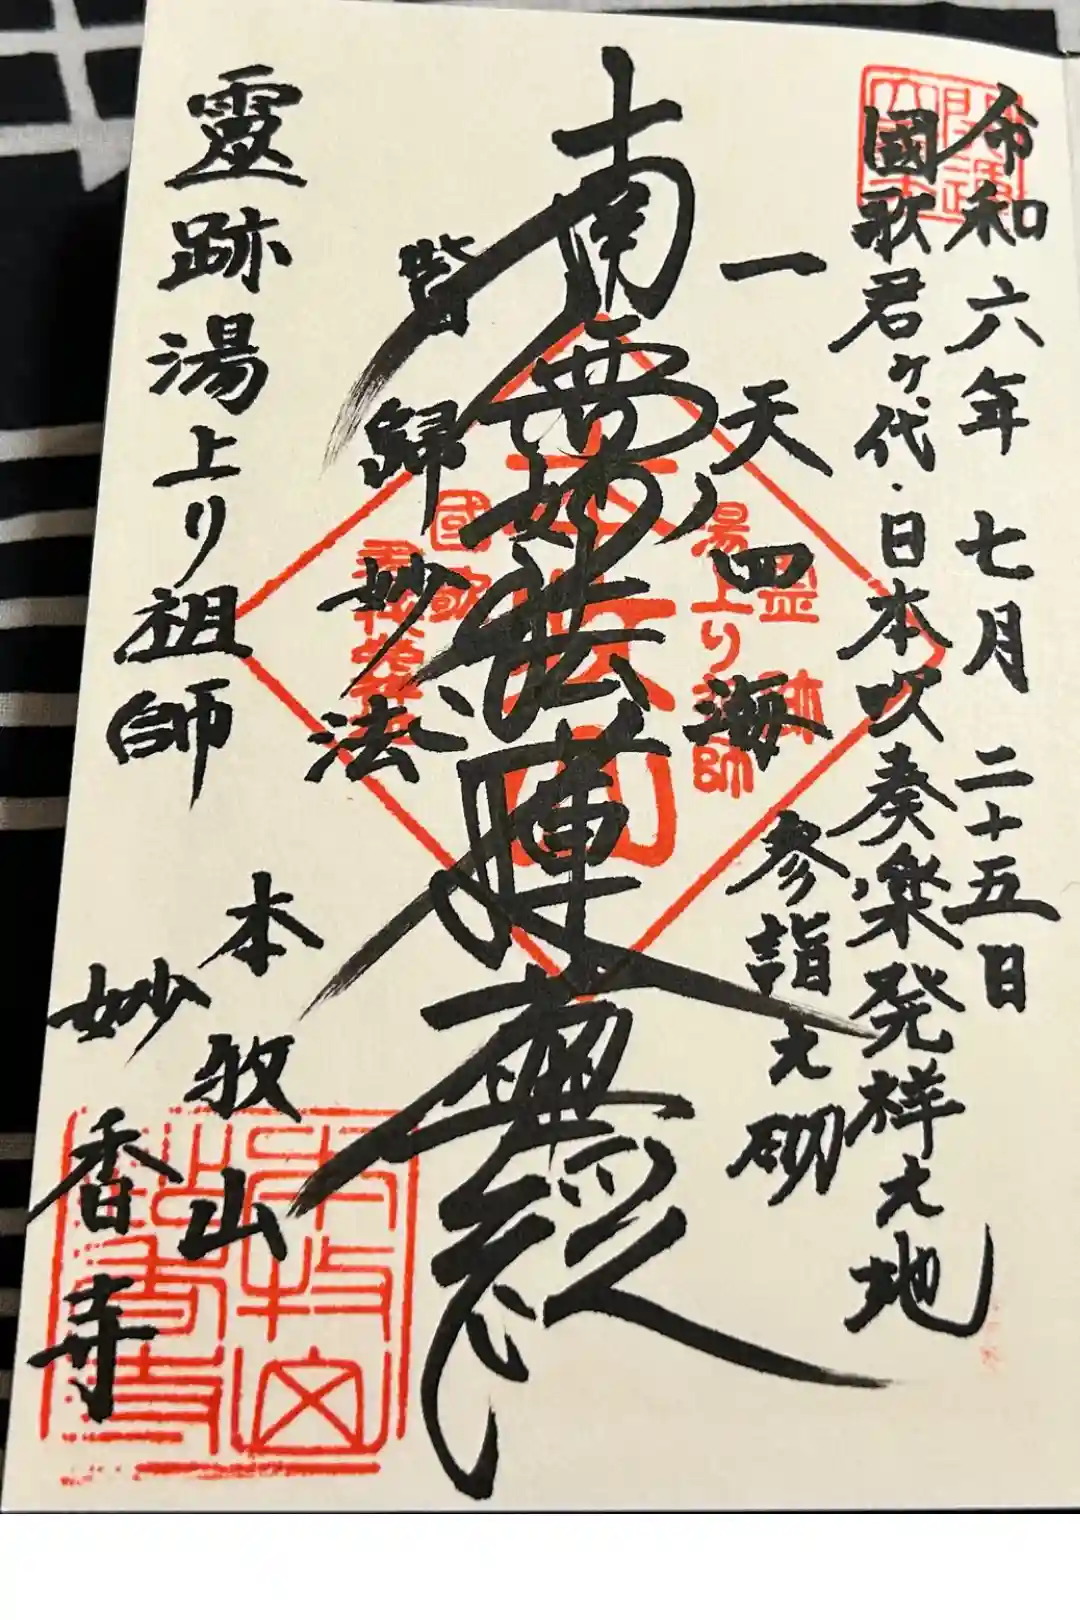 令和六年七月二十五日
國歌君ヶ代・日本吹奏楽発祥之地
参詣之砌
一天四海
南無妙法蓮華経
皆歸妙法
靈跡湯上り祖師
本牧山
妙香寺
霊跡
湯上り祖師
本牧山
國歌
本牧山
妙香寺